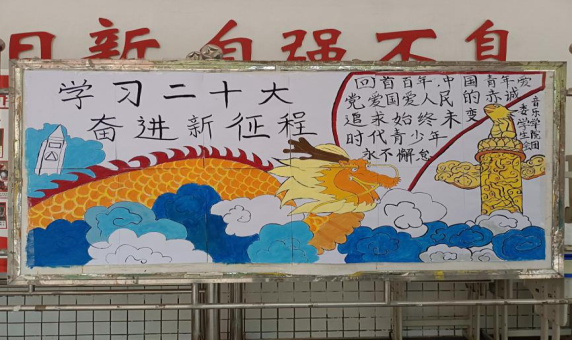 日新自强不息
学习二十大
奋进新征程
回首百年,中国青年爱
党爱国爱人民的赤诚
追求始终未变
时代青少年
永不懈怠
音乐学院
学生会